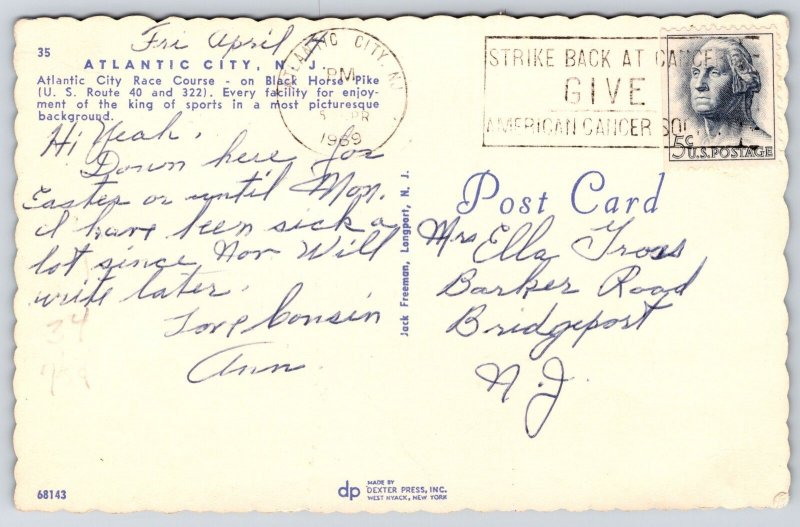 Fri April 4
35
ATLANTIC CITY, N. J.
Atlantic City Race Course - on Black Horse Pike
(U. S. Route 40 and 322). Every facility for enjoy-
ment of the king of sports in a most picturesque
background.
Hi Yeah.
Down here for
Easter or until Mon.
I have been sick a
lot since Nov Will
write later.
Love Cousin
Ann
ATLANTIC CITY, NJ
PM
5 APR
1969
STRIKE BACK AT CANCER
GIVE
AMERICAN CANCER SOC
5c U.S. POSTAGE
Post Card
Mrs Ella
Barker Road
Bridgeport
N.J.
Jack Freeman, Longport, N. J.
68143
dp MADE BY
DEXTER PRESS, INC.
WEST NYACK, NEW YORK